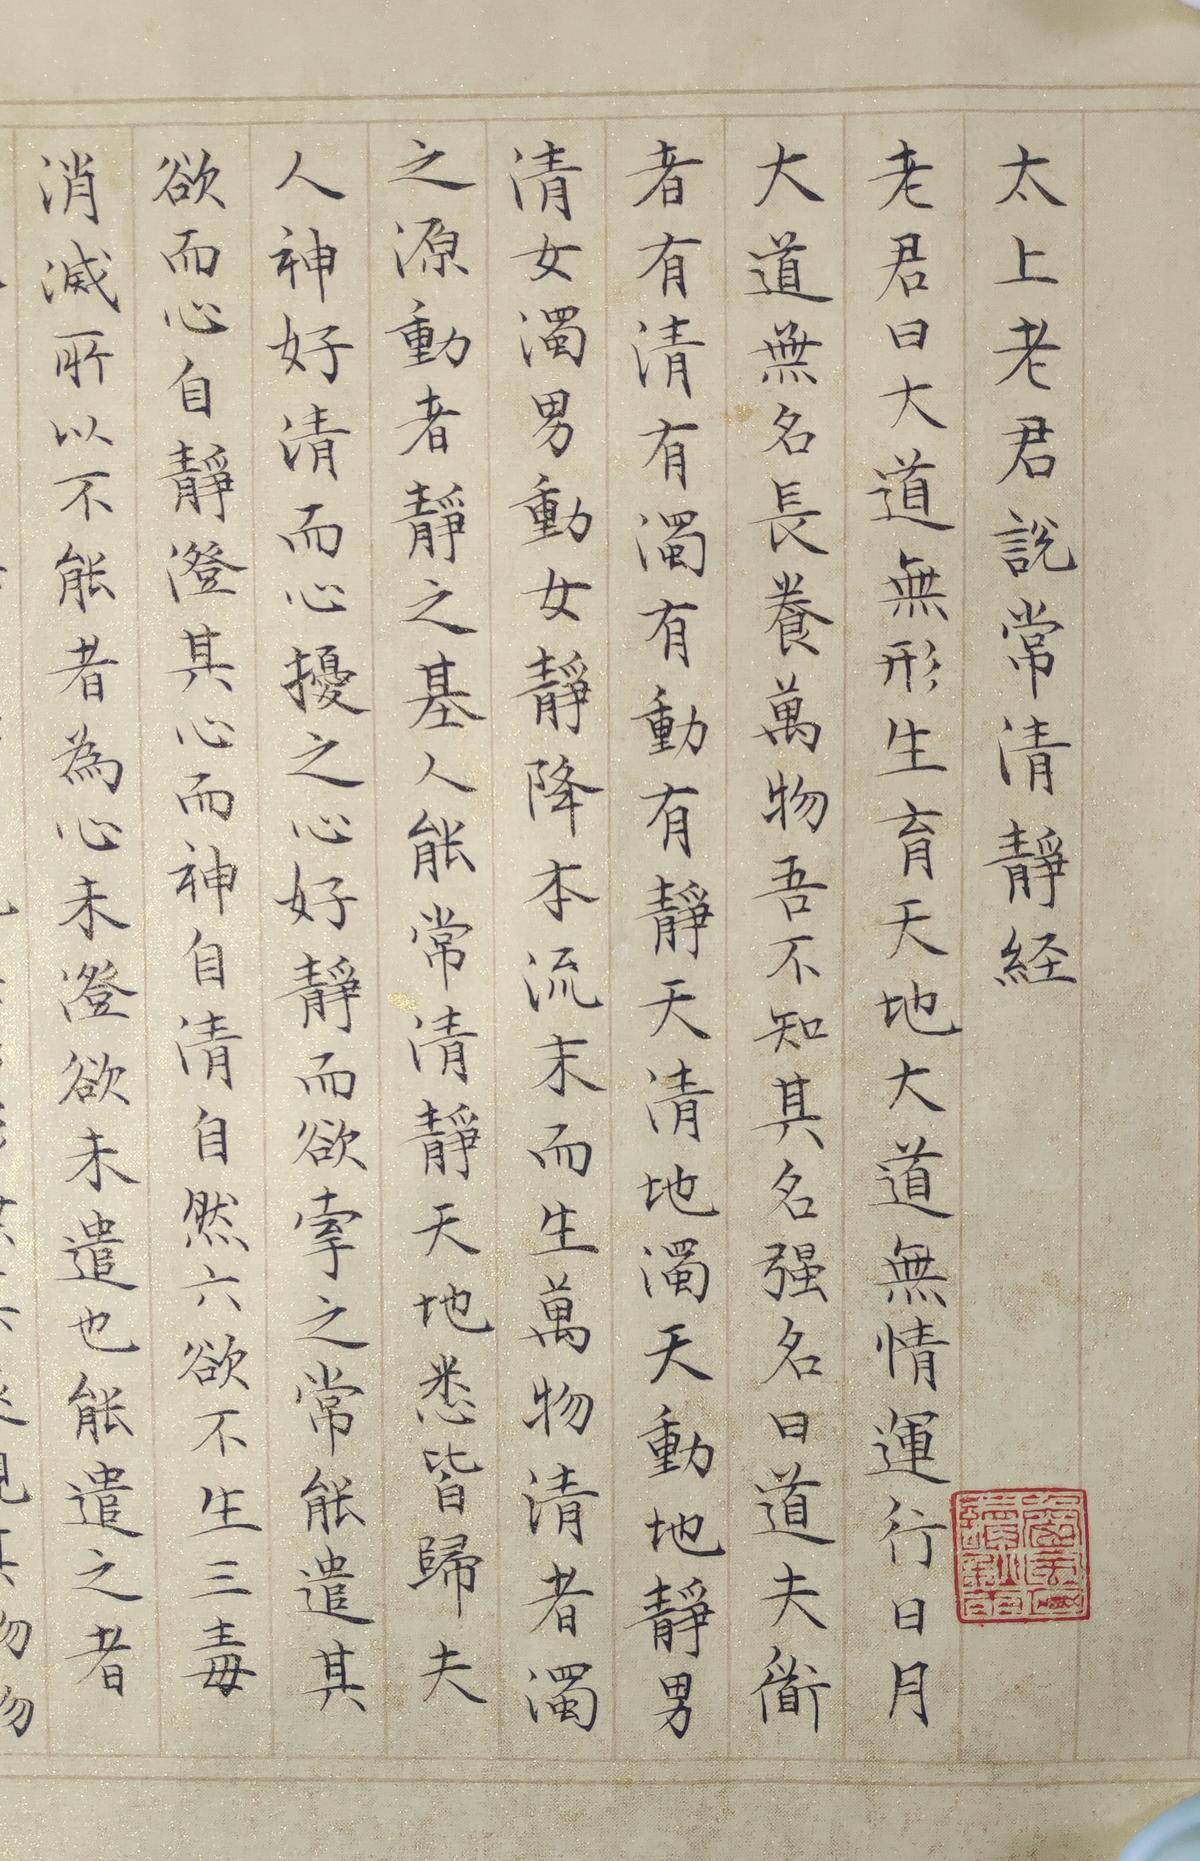 太上老君說常清靜経
老君曰大道無形生育天地大道無情運行日月
大道無名長養萬物吾不知其名强名曰道夫衜
者有清有濁有動有靜天清地濁天動地靜男
清女濁男動女靜降本流末而生萬物清者濁
之源動者靜之基人能常清靜天地悉皆歸夫
人神好清而心擾之心好靜而欲牽之常能遣其
欲而心自靜澄其心而神自清自然六欲不生三毒
消滅所以不能者為心未澄欲未遣也能遣之者